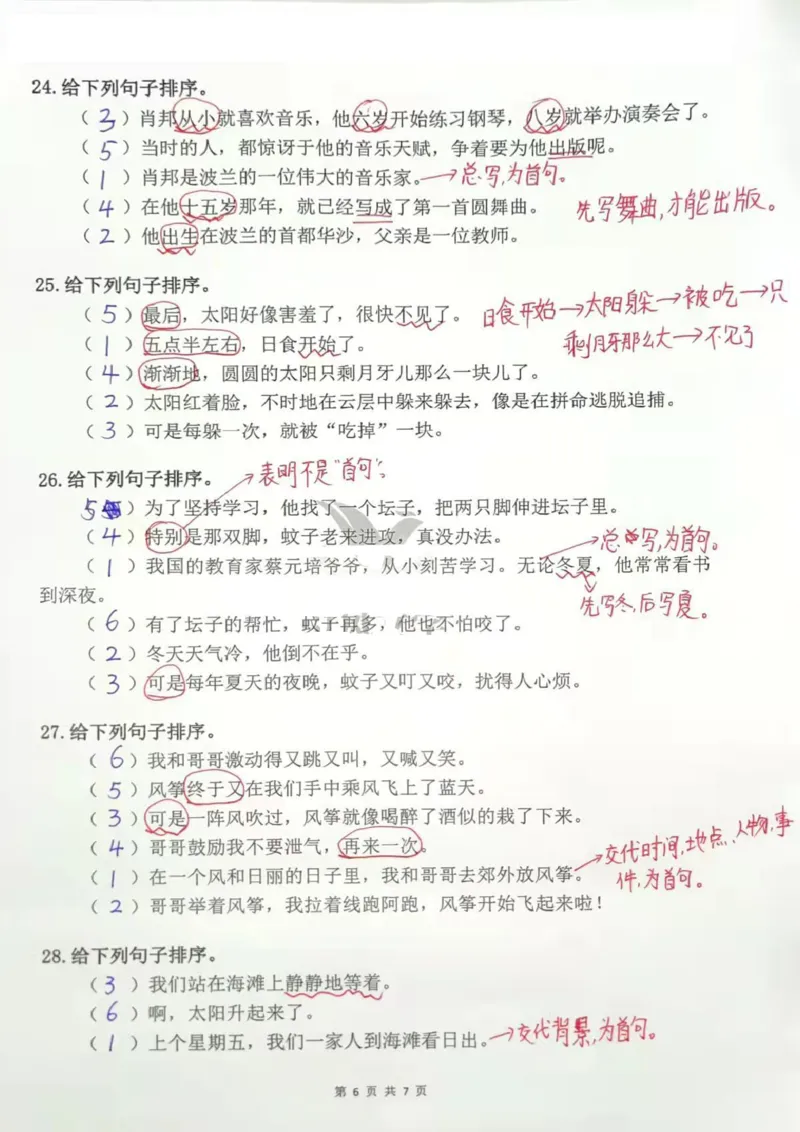 24.给下列句子排序。
（3）肖邦从小就喜欢音乐，他六岁开始练习钢琴，八岁就举办演奏会了。
（5）当时的人，都惊讶于他的音乐天赋，争着要为他出版呢。
（1）肖邦是波兰的一位伟大的音乐家。→总写,为首句。
（4）在他十五岁那年，就已经写成了第一首圆舞曲。 先写舞曲,才能出版。
（2）他出生在波兰的首都华沙，父亲是一位教师。
25.给下列句子排序。
（5）最后，太阳好像害羞了，很快不见了。 日食开始→太阳躲→被吃→只
（1）五点半左右，日食开始了。 剩月牙那么大→不见了
（4）渐渐地，圆圆的太阳只剩月牙儿那么一块儿了。
（2）太阳红着脸，不时地在云层中躲来躲去，像是在拼命逃脱追捕。
（3）可是每躲一次，就被“吃掉”一块。
26.给下列句子排序。 →表明不是“首句”。
（5）为了坚持学习，他找了一个坛子，把两只脚伸进坛子里。
（4）特别是那双脚，蚊子老来进攻，真没办法。 →总写,为首句。
（1）我国的教育家蔡元培爷爷，从小刻苦学习。无论冬夏，他常常看书
到深夜。 先写冬,后写夏。
（6）有了坛子的帮忙，蚊子再多，他也不怕咬了。
（2）冬天天气冷，他倒不在乎。
（3）可是每年夏天的夜晚，蚊子又叮又咬，扰得人心烦。
27.给下列句子排序。
（6）我和哥哥激动得又跳又叫，又喊又笑。
（5）风筝终于又在我们手中乘风飞上了蓝天。
（3）可是一阵风吹过，风筝就像喝醉了酒似的栽了下来。
（4）哥哥鼓励我不要泄气，再来一次。 →交代时间,地点、人物,事
（1）在一个风和日丽的日子里，我和哥哥去郊外放风筝。 件,为首句。
（2）哥哥举着风筝，我拉着线跑阿跑，风筝开始飞起来啦！
28.给下列句子排序。
（3）我们站在海滩上静静地等着。
（6）啊，太阳升起来了。
（1）上个星期五，我们一家人到海滩看日出。→交代背景,为首句。
第 6 页 共 7 页